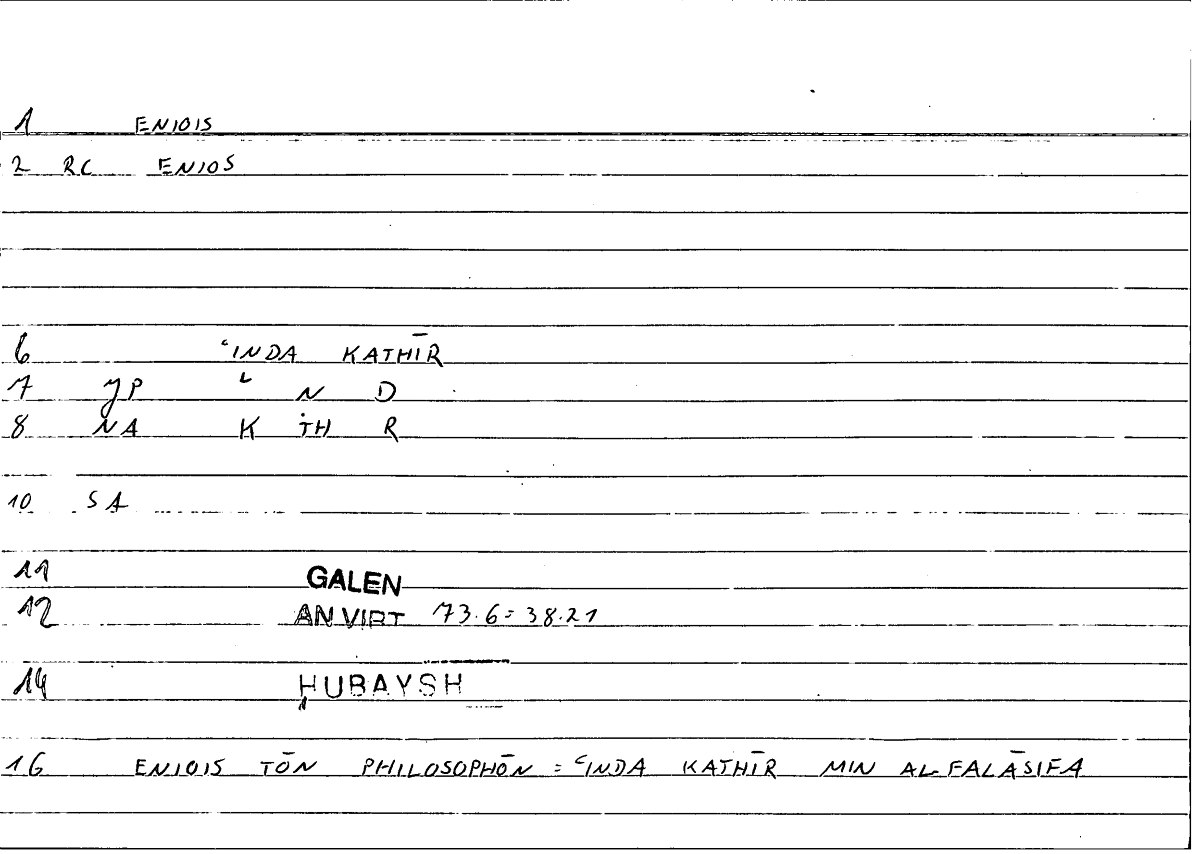 1 ENIOIS
2 RC ENIOS
6 ʿINDA KATHĪR
7 JP ʿ N D
8 NA K TH R
10 SA
11 GALEN
12 AN VIRT 73.6=38.21
14 HUBAYSH
16 ENIOIS TŌN PHILOSOPHŌN = ʿINDA KATHĪR MIN AL-FALĀSIFA